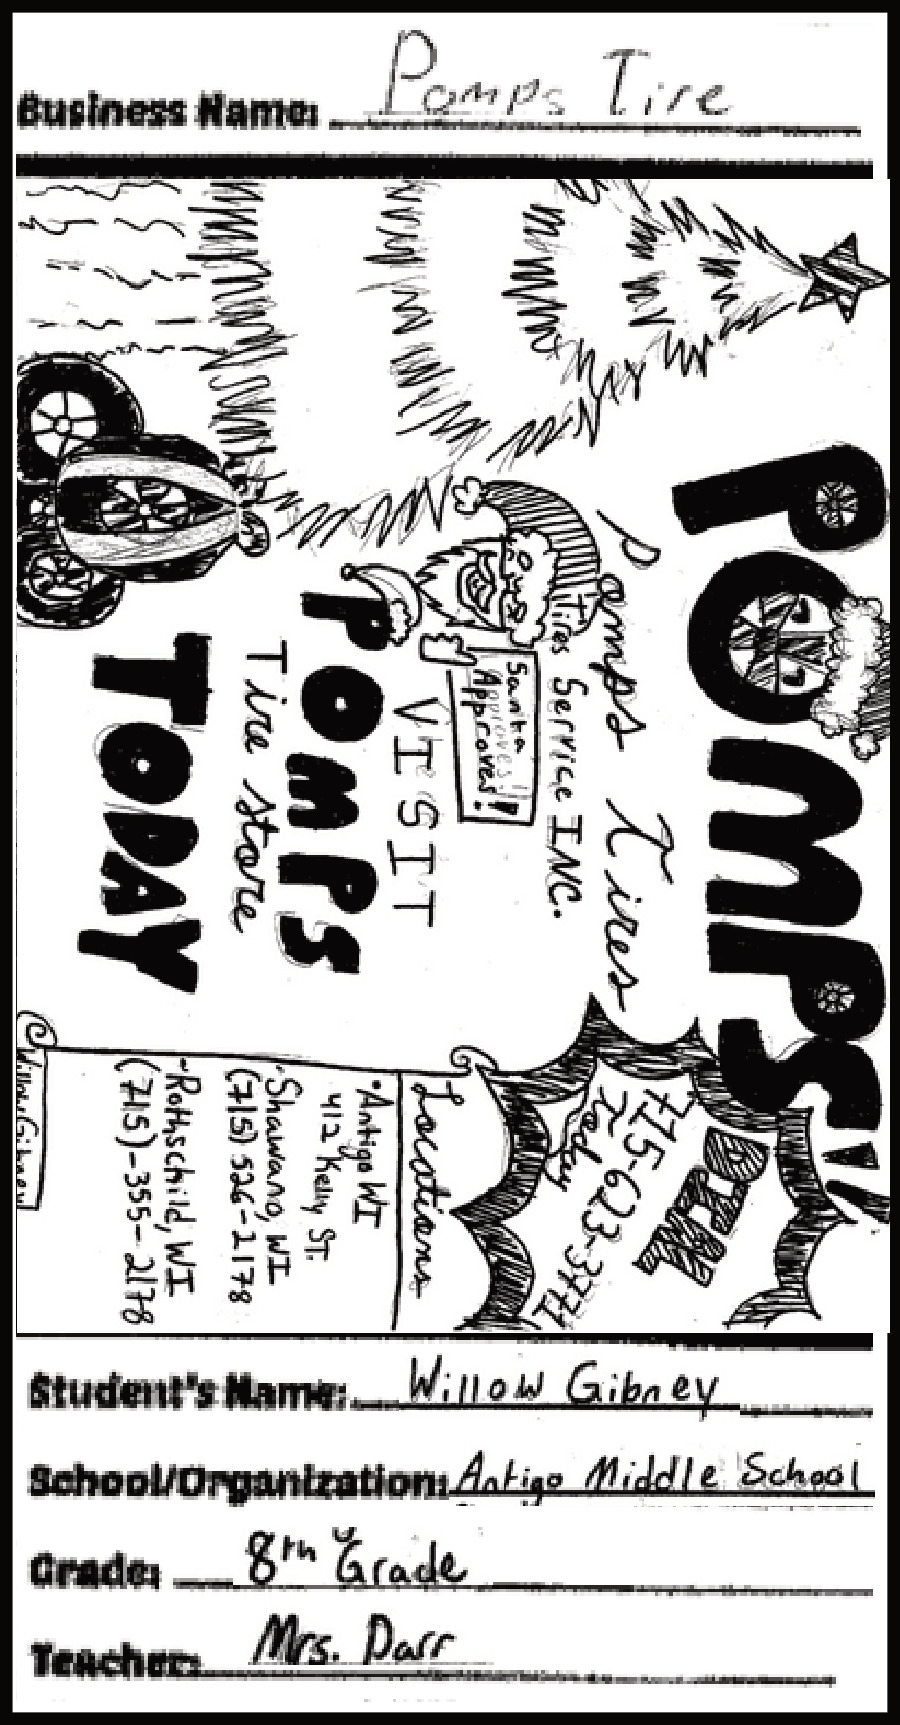 Business Name: Pomps Tire
POMPS!!
Pomps Tires
Tires Service INC.
Santa
Approves!
VISIT
POMPS
Tire store
TODAY
DIAL
715-623-3771
Today
Locations
•Antigo WI
412 Kelly St.
-Shawano, WI
(715) 526-2178
-Rothschild, WI
(715)-355-2178
Willow Gibney
Student's Name: Willow Gibney
School/Organization: Antigo Middle School
Grade: 8th Grade
Teacher: Mrs. Darr